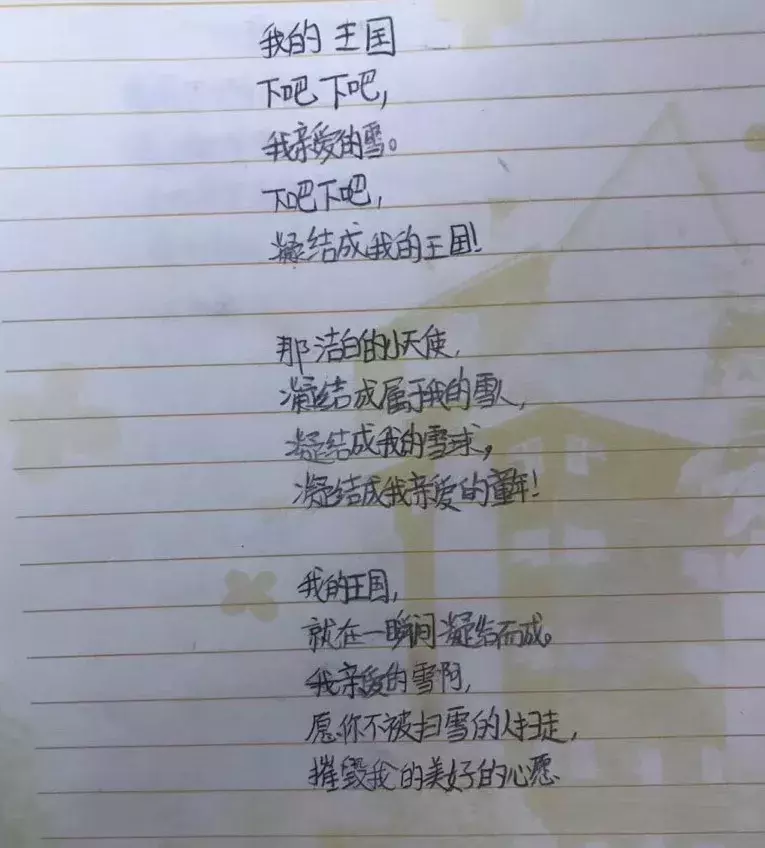 我的王国
下吧下吧，
我亲爱的雪。
下吧下吧，
凝结成我的王国！
那洁白的小天使，
凝结成属于我的雪人，
凝结成我的雪球，
凝结成我亲爱的童年！
我的王国，
就在一瞬间凝结而成。
我亲爱的雪啊，
愿你不被扫雪的人扫走，
摧毁我的美好的心愿